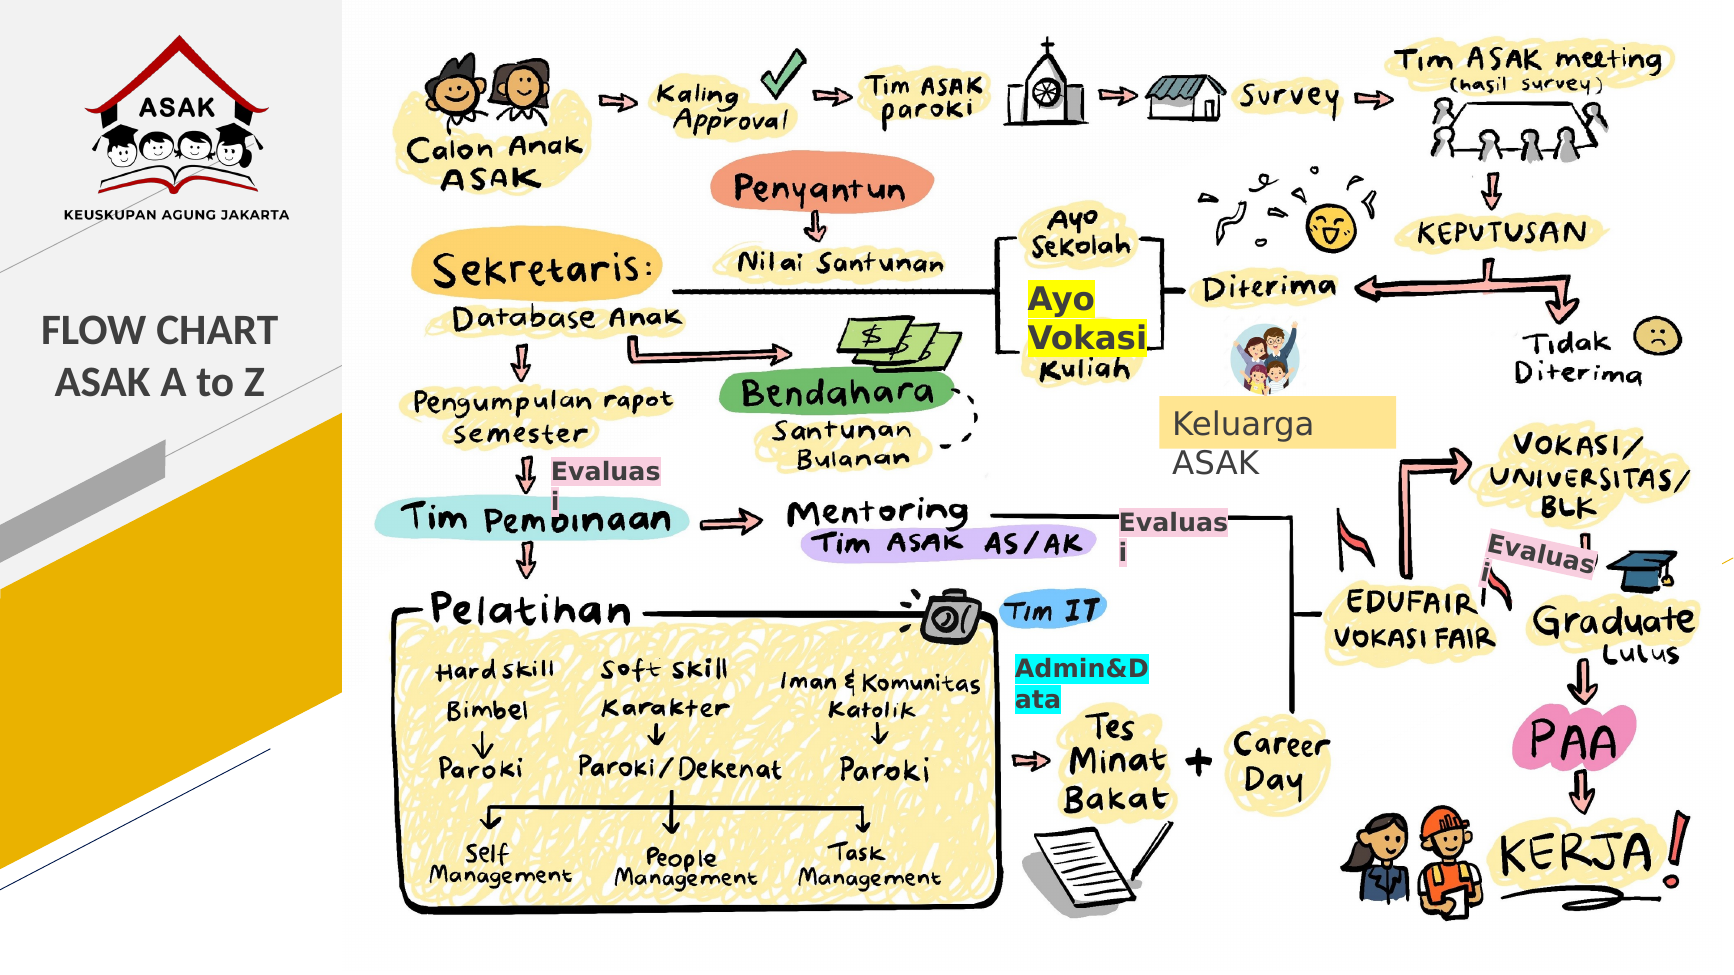 ASAK
KEUSKUPAN AGUNG JAKARTA
FLOW CHART
ASAK A to Z
Calon Anak
ASAK
Kaling
Approval
Tim ASAK
paroki
Survey
Tim ASAK meeting
(hasil survey)
KEPUTUSAN
Diterima
Tidak
Diterima
Ayo
Sekolah
Ayo
Vokasi
Kuliah
Keluarga
ASAK
Penyantun
Nilai Santunan
Sekretaris:
Database Anak
$
$
$
Bendahara
Santunan
Bulanan
Pengumpulan rapot
Semester
Evaluas
i
Tim Pembinaan
Mentoring
Tim ASAK AS/AK
Evaluas
i
Pelatihan
Tim IT
Hard skill
Bimbel
Paroki
Soft skill
Karakter
Paroki/Dekenat
Iman & Komunitas
Katolik
Paroki
Self
Management
People
Management
Task
Management
Admin&D
ata
Tes
Minat
Bakat
+
Career
Day
EDUFAIR
VOKASI FAIR
VOKASI/
UNIVERSITAS/
BLK
Evaluas
i
Graduate
Lulus
PAA
KERJA!